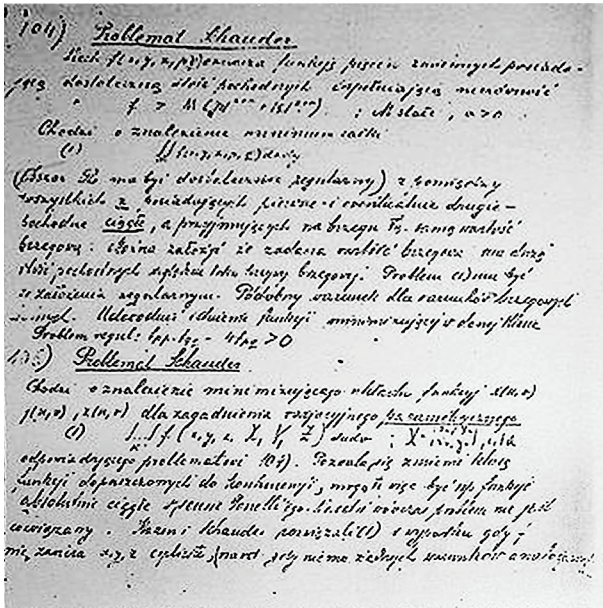 104) Problemat Schauder
Niech f(x,y,z,p,q) oznacza funkcję pięciu zmiennych posiada-
jącą dostateczną ilość pochodnych i spełniającą nierówność
f > M ; M stałe, α>0
Chodzi o znalezienie minimum całki
(1) ∬ f(x,y,z,p,q) dx dy
(Obszar ma być dostatecznie regularny) z pomiędzy
wszystkich z posiadających pierwsze i ewentualnie drugie
pochodne ciągłe, a przyjmujących na brzegu tę samą wartość
brzegową: można założyć że zadana wartość brzegowa ma dużą
ilość pochodnych względem łuku krzywej brzegowej. Problem (1) ma być
z założenia regularnym. Podobny warunek dla warunków brzegowych
Udowodnić istnienie funkcji minimizującej w danej klasie
Problem regul: fpp fqq - 4fpq > 0
105) Problemat Schauder
Chodzi o znalezienie minimizującego układu funkcji x(u,v)
y(u,v), z(u,v) dla zagadnienia wariacyjnego parametrycznego
(1) ∬ f(x,y,z, X, Y, Z) du dv ;
odpowiadającego problematowi 104). Pozwala się zmienić klasę
funkcji dopuszczonych do konkurencji, mogą to więc być np. funkcje
absolutnie ciągłe w sensie Tonelli'ego. wówczas problem nie jest
rozwiązany. i Schauder rozwiązali (1) w wypadku gdy f
nie zawiera x,y,z explicite, (nawet gdy nie ma żadnych warunków